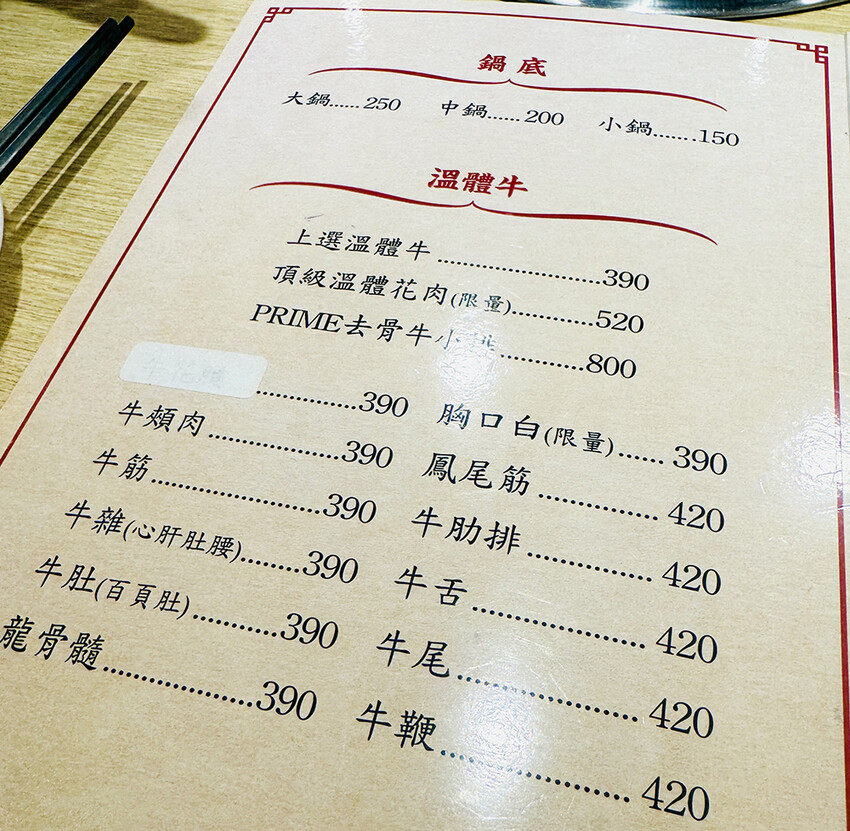 鍋底
大鍋......250 中鍋......200 小鍋.......150
溫體牛
上選溫體牛........................390
頂級溫體花肉(限量)............520
PRIME去骨牛小排............800
..............390 胸口白(限量)......390
牛頰肉....................390 鳳尾筋................420
牛筋........................390 牛肋排................420
牛雜(心肝肚腰)........390 牛舌......................420
牛肚(百頁肚)............390 牛尾........................420
龍骨髓....................390 牛鞭........................420